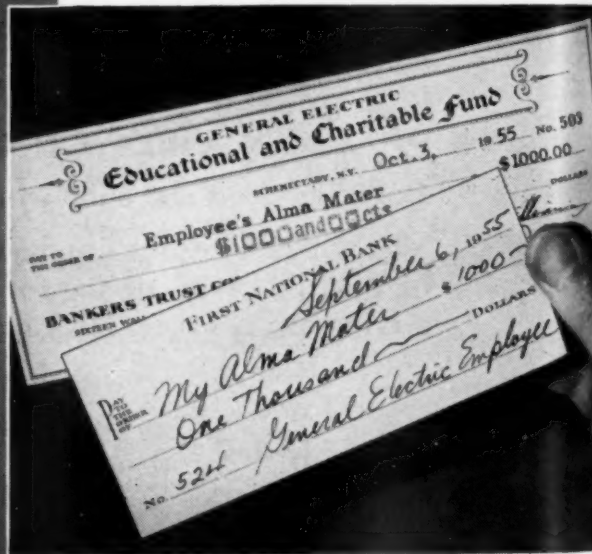 GENERAL ELECTRIC
Educational and Charitable Fund
SCHENECTADY, N.Y. Oct. 3, 1955 No. 503
PAY TO
THE ORDER OF Employee's Alma Mater $1000.00
$1000and00cts DOLLARS
BANKERS TRUST CO
SIXTEEN WALL
FIRST NATIONAL BANK
September 6, 1955
PAY
TO
THE
ORDER
OF My Alma Mater $1000
One Thousand DOLLARS
No. 524 General Electric Employee